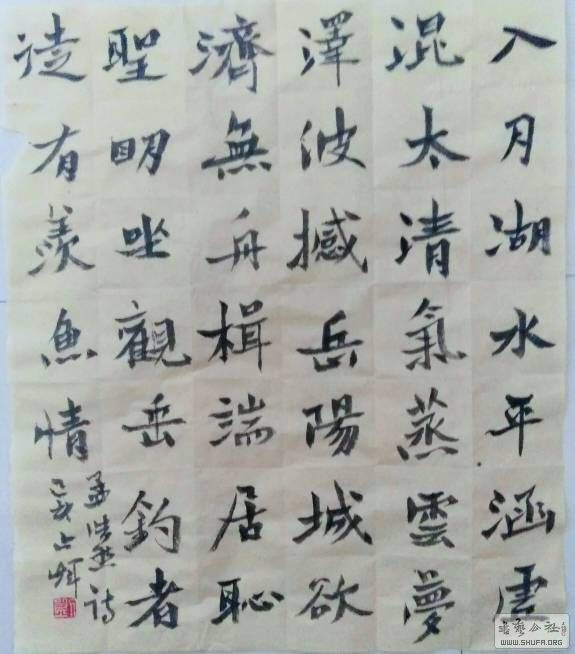 八月湖水平涵虛
混太清氣蒸雲夢
澤波撼岳陽城欲
濟無舟楫端居恥
聖明坐觀垂釣者
徒有羨魚情
孟浩然詩
己亥
書藝公社
WWW.SHUFA.ORG